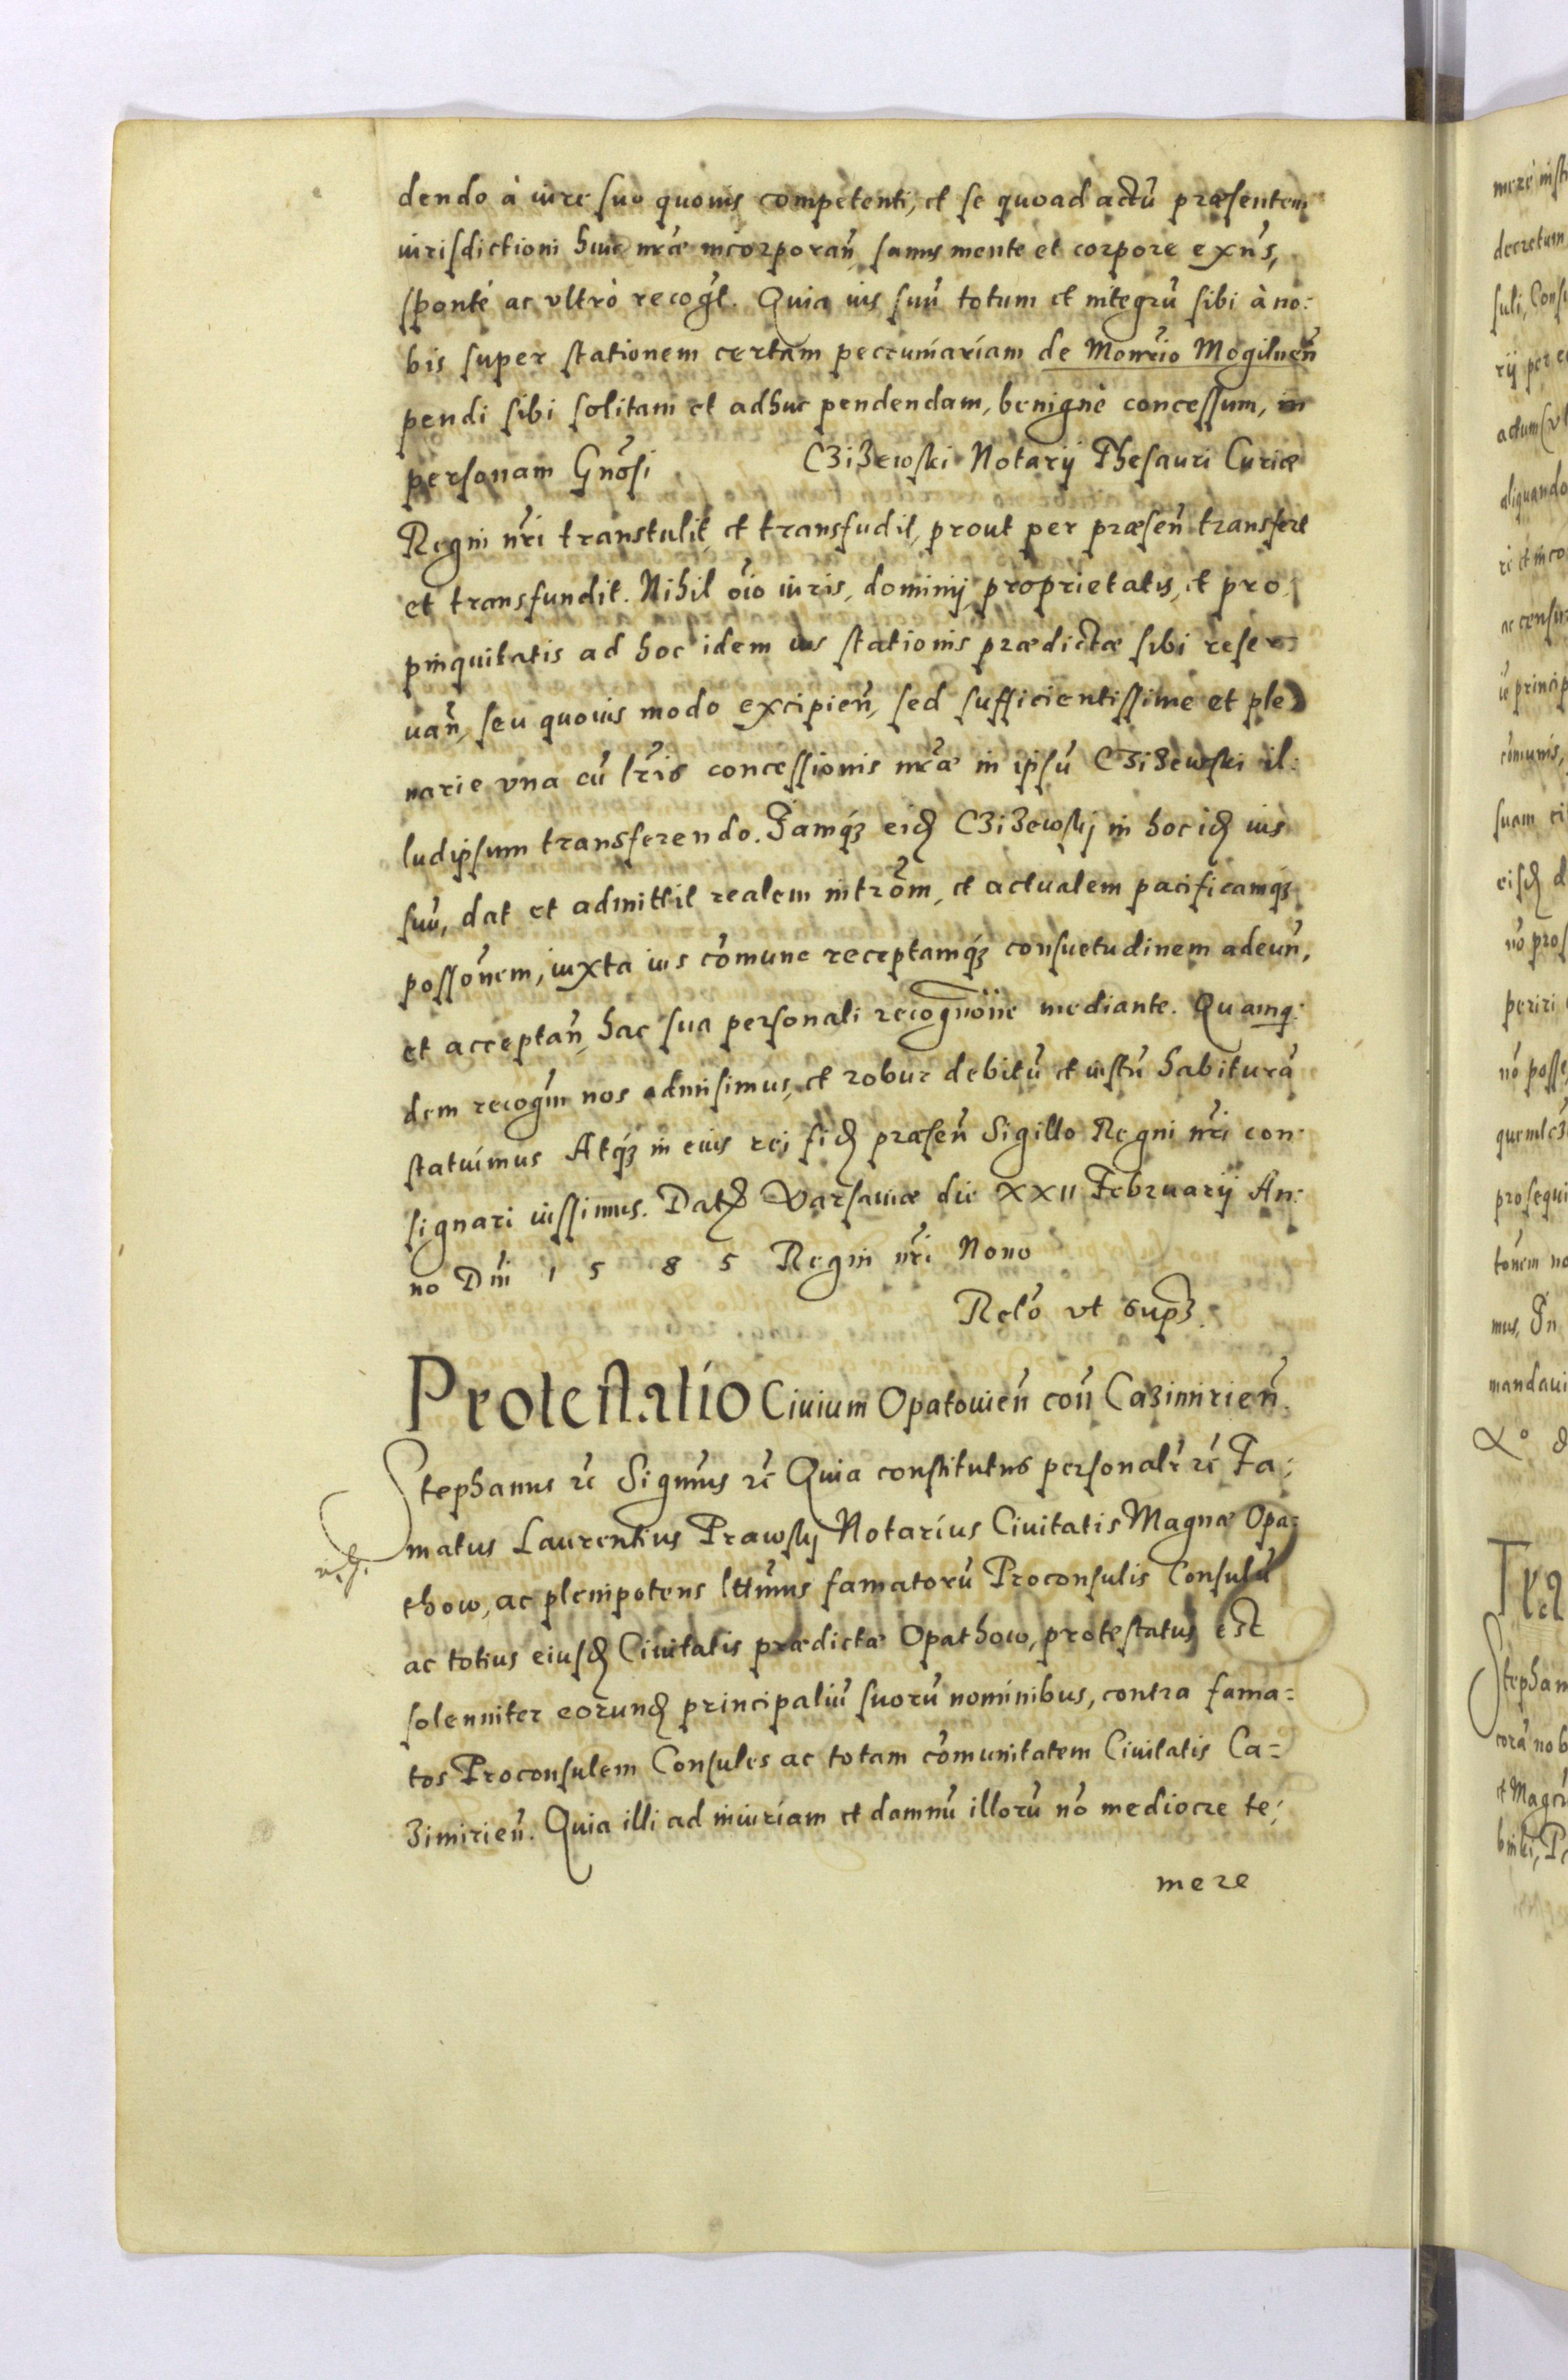 dendo à iure suo quovis competenti, et se quoad actũ præsentem
iurisdictioni huic nr̃æ incorporañ, sanus mente et corpore exñs,
sponté ac vltrò recogt̃. Quia ius suũ totum et integrũ sibi à no:
bis super stationem certam pecuniariam de Monr̃io Mogilneñ
pendi sibi solitam et adhuc pendendam, benignè concessum, in
personam Gnõsi Czizewski Notarij Thesauri Curiæ
Regni nr̃i transtulit, et transfudit, prout per præseñ transfert
et transfundit. Nihil oĩo iuris, dominij, proprietatis, et pro
pinquitatis ad hoc idem ius stationis prædictæ sibi reser
uañ, seu quouis modo excipieñ, sed sufficientissime et ple
narie vna cũ lr̃is concessionis nr̃æ in ipsũ Czizewski il:
ludipsum transferendo. Iamqz eid Czizewskj in hoc id ius
suũ, dat et admittit realem intrõm, et actualem pacificamqz
possõnem, iuxta ius cõmune receptamqz consuetudinem adeuñ,
et acceptañ, hac sua personali recognõne mediante. Quamq:
dem recogñm nos admisimus, et robur debitũ et iustũ habiturã
statuimus Atqz in eius rej fid præseñ Sigillo Regni nr̃i con:
signari iussimus. Dat Varsauiæ die XXII Februarij An:
no Dñi 1 5 8 5 Regni nr̃i Nono
Relõ vt supz.
Protestatio Civium Opatovieñ coñ Cazimirieñ.
Stephanus rc̃ Significamus rc̃ Quia constitutus personalr̃ rc̃ Fa:
matus Laurentius Prawskj Notarius Civitatis Magnæ Opa=
thow, ac plenipotens ltt̃imus famatorũ Proconsulis Consulũ
ac totius eiusd Civitatis prædictæ Opathow, protestatus est
solenniter eorund principaliũ suorũ nominibus, contra fama=
tos Proconsulem Consules ac totam cõmunitatem Civitatis Ca=
zimirieñ. Quia illi ad iniuriam et damnũ illorũ nõ mediocre te:
mere